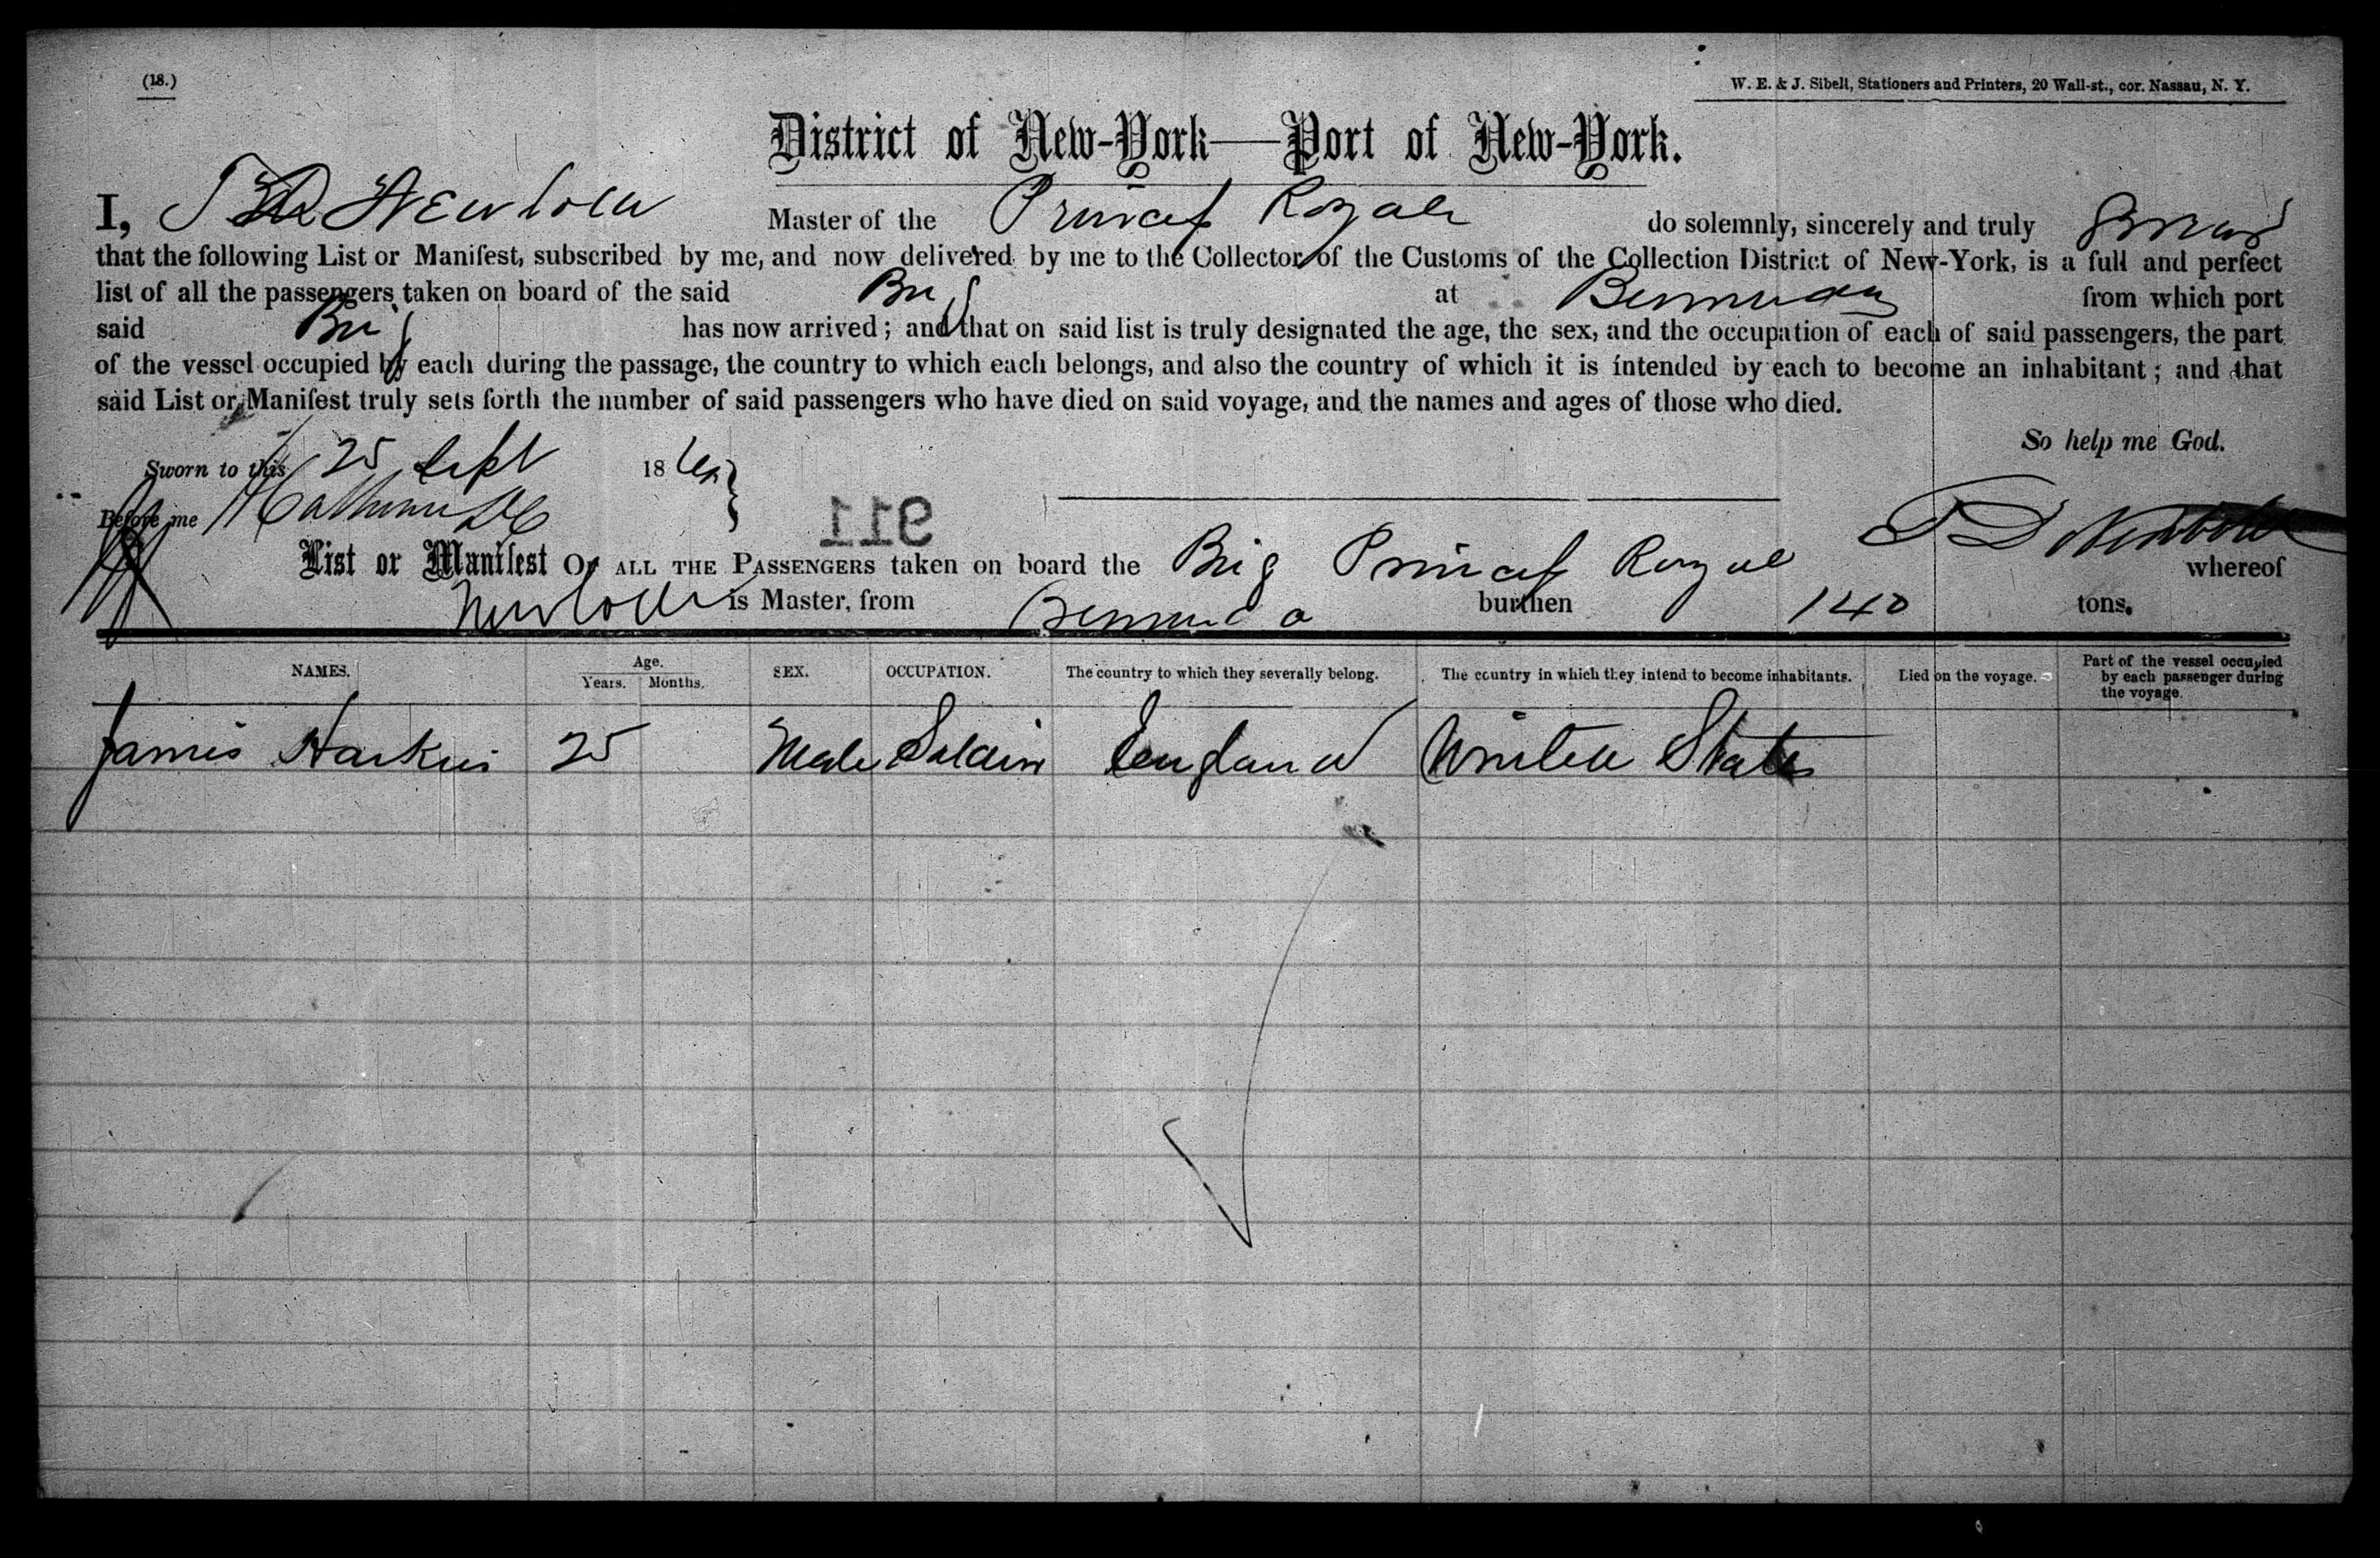 (18.)
W. E. & J. Sibell, Stationers and Printers, 20 Wall-st., cor. Nassau, N. Y.
District of New-York—Port of New-York.
I, T D Newbold Master of the Princess Royale do solemnly, sincerely and truly swear
that the following List or Manifest, subscribed by me, and now delivered by me to the Collector of the Customs of the Collection District of New-York, is a full and perfect
list of all the passengers taken on board of the said Brig at Bermuda from which port
said Brig has now arrived; and that on said list is truly designated the age, the sex, and the occupation of each of said passengers, the part
of the vessel occupied by each during the passage, the country to which each belongs, and also the country of which it is intended by each to become an inhabitant; and that
said List or Manifest truly sets forth the number of said passengers who have died on said voyage, and the names and ages of those who died.
So help me God.
Sworn to this 25 Sept 18
Before me
911
T D Newbold
List or Manifest OF ALL THE PASSENGERS taken on board the Brig Princess Royal whereof
Newbold is Master, from Bermuda burthen 140 tons.
NAMES. Age. Years. Months. SEX. OCCUPATION. The country to which they severally belong. The country in which they intend to become inhabitants. Died on the voyage. Part of the vessel occupied by each passenger during the voyage.
James Harkins 25 Male Soldier England United States